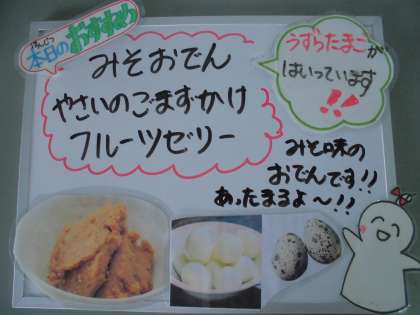 本日の
おすすめ
みそおでん
やさいのごまずかけ
フルーツゼリー
うずらたまごが
はいっています
!!
みそ味の
おでんです!!
あったまるよ〜!!